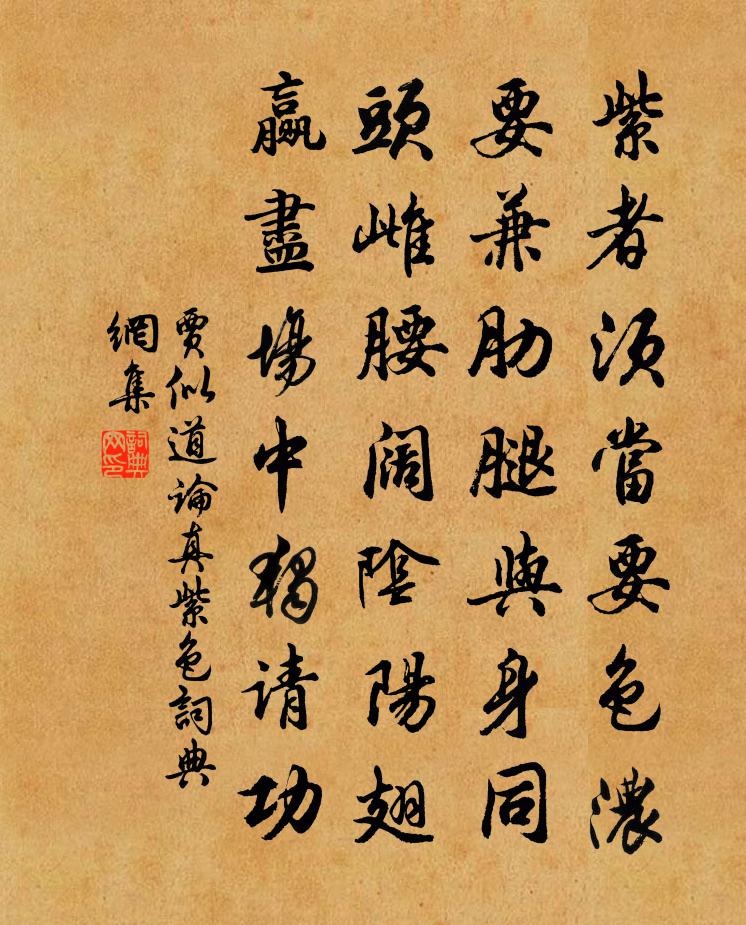 紫者須當要色濃
要兼肋腿與身同
頭雌腰闊陰陽翅
贏盡場中獨请功
賈似道論真紫色詞典
網集
詞典
网印